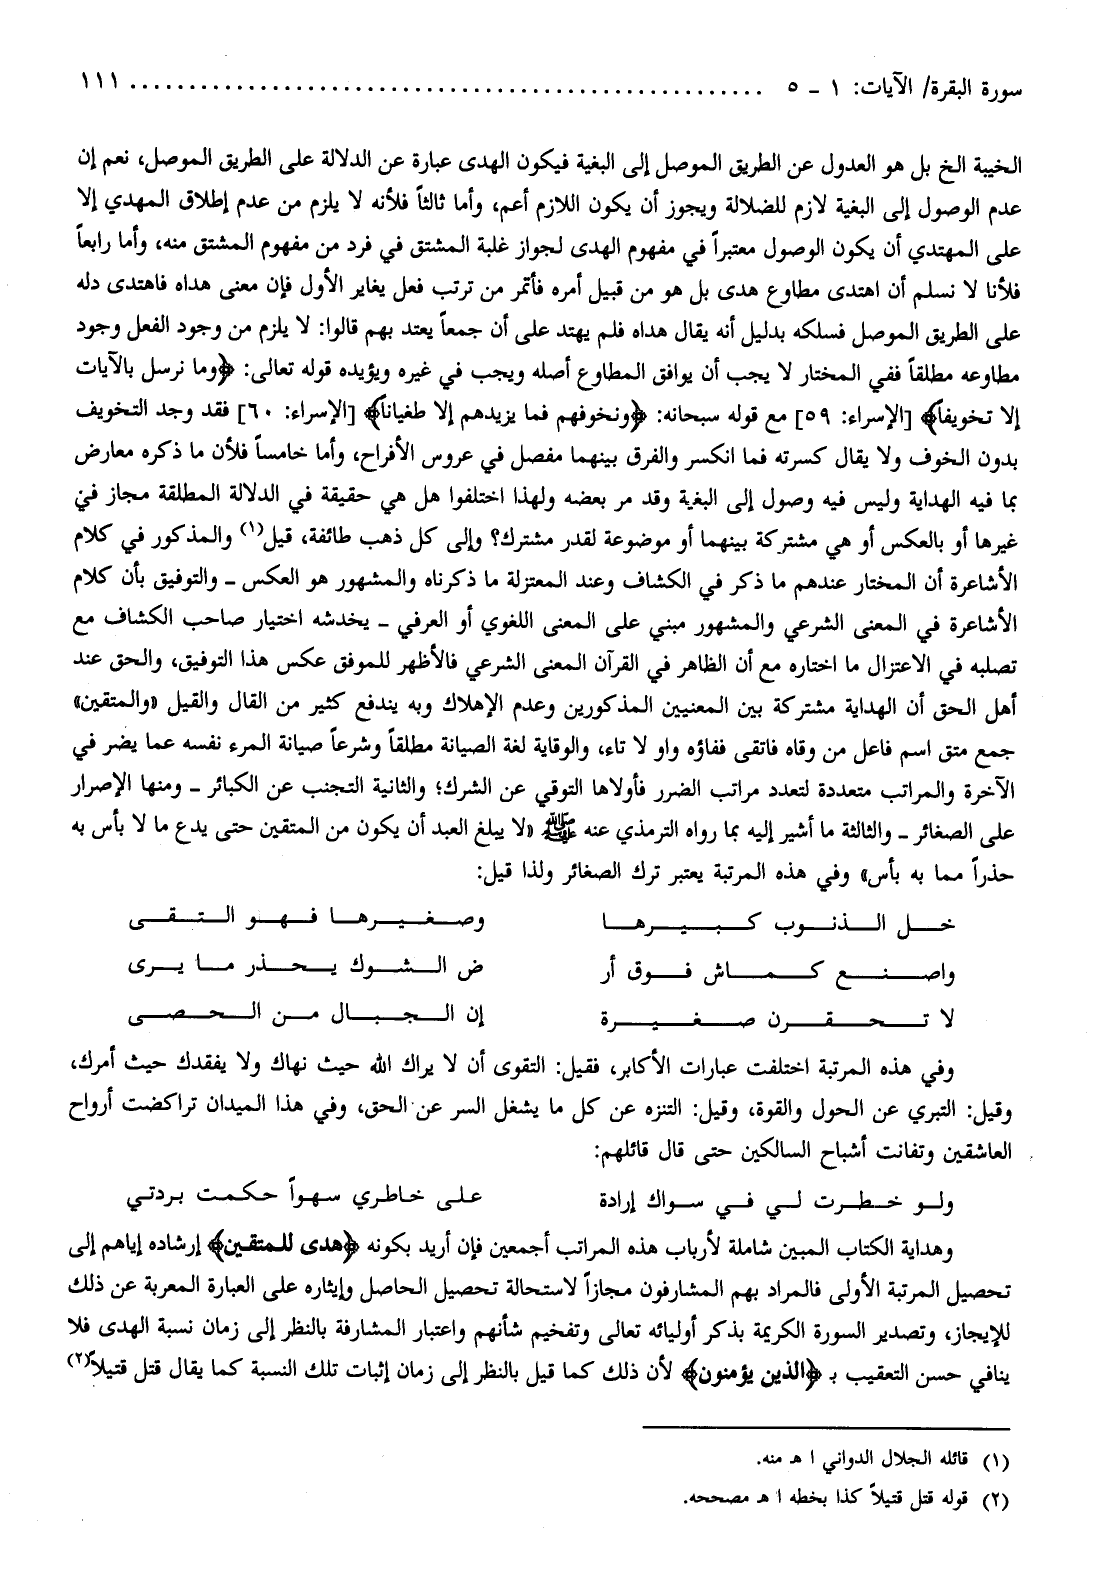 سورة البقرة/ الآيات: ١ - ٥ ..................................................... ١١١
الخيبة الخ بل هو العدول عن الطريق الموصل إلى البغية فيكون الهدى عبارة عن الدلالة على الطريق الموصل، نعم إن
عدم الوصول إلى البغية لازم للضلالة ويجوز أن يكون اللازم أعم، وأما ثالثاً فلأنه لا يلزم من عدم إطلاق المهدي إلا
على المهتدي أن يكون الوصول معتبراً في مفهوم الهدى لجواز غلبة المشتق في فرد من مفهوم المشتق منه، وأما رابعاً
فلأنا لا نسلم أن اهتدى مطاوع هدى بل هو من قبيل أمره فأتمر من ترتب فعل يغاير الأول فإن معنى هداه فاهتدى دله
على الطريق الموصل فسلكه بدليل أنه يقال هداه فلم يهتد على أن جمعاً يعتد بهم قالوا: لا يلزم من وجود الفعل وجود
مطاوعه مطلقاً ففي المختار لا يجب أن يوافق المطاوع أصله ويجب في غيره ويؤيده قوله تعالى: ﴿وما نرسل بالآيات
إلا تخويفاً﴾ [الإسراء: ٥٩] مع قوله سبحانه: ﴿ونخوفهم فما يزيدهم إلا طغياناً﴾ [الإسراء: ٦٠] فقد وجد التخويف
بدون الخوف ولا يقال كسرته فما انكسر والفرق بينهما مفصل في عروس الأفراح، وأما خامساً فلأن ما ذكره معارض
بما فيه الهداية وليس فيه وصول إلى البغية وقد مر بعضه ولهذا اختلفوا هل هي حقيقة في الدلالة المطلقة مجاز في
غيرها أو بالعكس أو هي مشتركة بينهما أو موضوعة لقدر مشترك؟ وإلى كل ذهب طائفة، قيل(١) والمذكور في كلام
الأشاعرة أن المختار عندهم ما ذكر في الكشاف وعند المعتزلة ما ذكرناه والمشهور هو العكس - والتوفيق بأن كلام
الأشاعرة في المعنى الشرعي والمشهور مبني على المعنى اللغوي أو العرفي - يخدشه اختيار صاحب الكشاف مع
تصلبه في الاعتزال ما اختاره مع أن الظاهر في القرآن المعنى الشرعي فالأظهر للموفق عكس هذا التوفيق، والحق عند
أهل الحق أن الهداية مشتركة بين المعنيين المذكورين وعدم الإهلاك وبه يندفع كثير من القال والقيل «والمتقين»
جمع متق اسم فاعل من وقاه فاتقى ففاؤه واو لا تاء، والوقاية لغة الصيانة مطلقاً وشرعاً صيانة المرء نفسه عما يضر في
الآخرة والمراتب متعددة لتعدد مراتب الضرر فأولاها التوقي عن الشرك؛ والثانية التجنب عن الكبائر - ومنها الإصرار
على الصغائر - والثالثة ما أشير إليه بما رواه الترمذي عنه ﷺ «لا يبلغ العبد أن يكون من المتقين حتى يدع ما لا بأس به
حذراً مما به بأس» وفي هذه المرتبة يعتبر ترك الصغائر ولذا قيل:
خل الذنوب كبيرها وصغيرها فهو التقى
واصنع كماش فوق أر ض الشوك يحذر ما يرى
لا تحقرن صغيرة إن الجبال من الحصى
وفي هذه المرتبة اختلفت عبارات الأكابر، فقيل: التقوى أن لا يراك الله حيث نهاك ولا يفقدك حيث أمرك،
وقيل: التبري عن الحول والقوة، وقيل: التنزه عن كل ما يشغل السر عن الحق، وفي هذا الميدان تراكضت أرواح
العاشقين وتفانت أشباح السالكين حتى قال قائلهم:
ولو خطرت لي في سواك إرادة على خاطري سهواً حكمت بردتي
وهداية الكتاب المبين شاملة لأرباب هذه المراتب أجمعين فإن أريد بكونه ﴿هدى للمتقين﴾ إرشاده إياهم إلى
تحصيل المرتبة الأولى فالمراد بهم المشارفون مجازاً لاستحالة تحصيل الحاصل وإيثاره على العبارة المعربة عن ذلك
للإيجاز، وتصدير السورة الكريمة بذكر أوليائه تعالى وتفخيم شأنهم واعتبار المشارفة بالنظر إلى زمان نسبة الهدى فلا
ينافي حسن التعقيب بـ ﴿الذين يؤمنون﴾ لأن ذلك كما قيل بالنظر إلى زمان إثبات تلك النسبة كما يقال قتل قتيلاً(٢)
(١) قائله الجلال الدواني ا هـ منه.
(٢) قوله قتل قتيلاً كذا بخطه ا هـ مصححه.